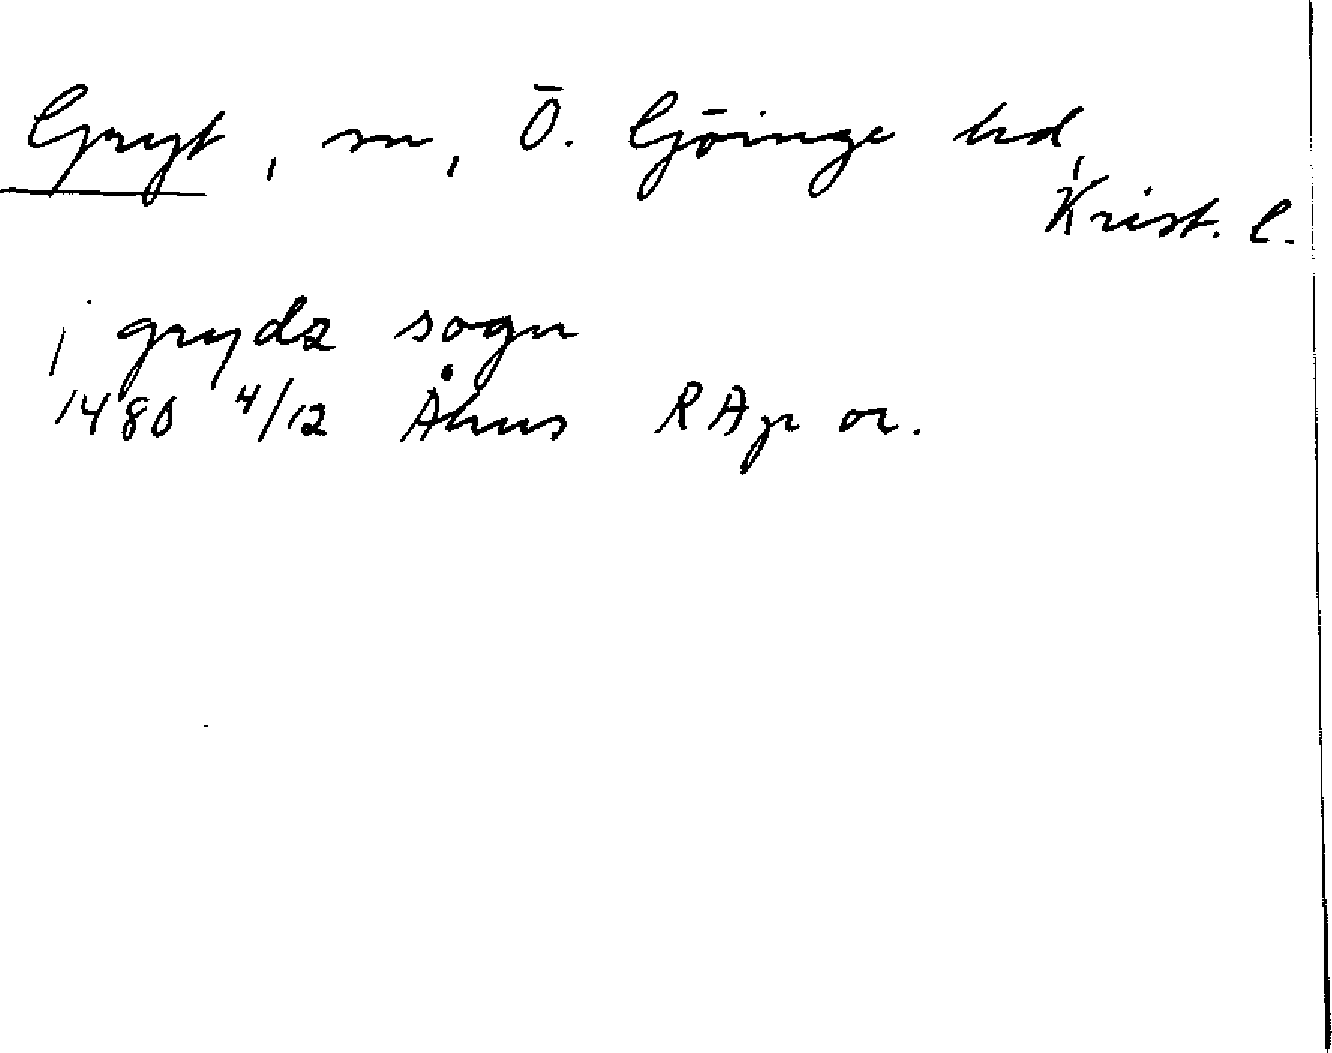 Gryt, sn, Ö. Göinge hd,
Krist. l.
j grydz sogn
1480 4/12 Åhus RAp or.